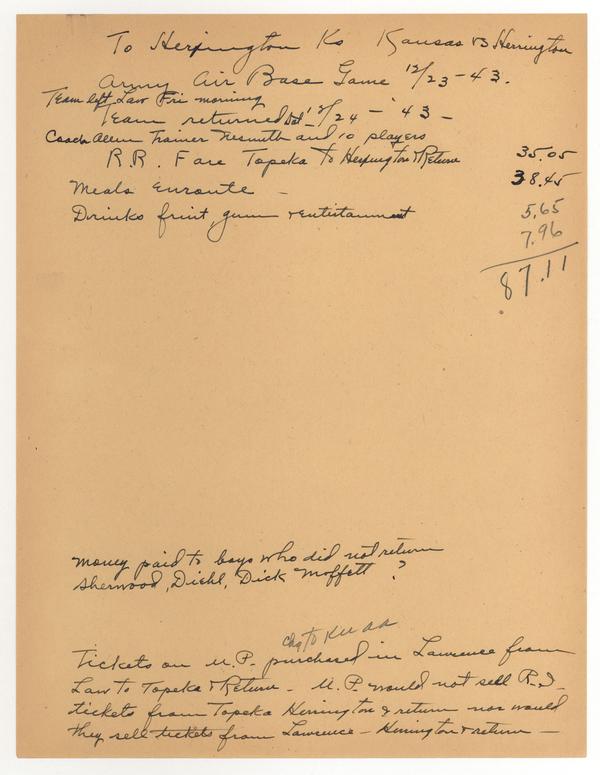 To Herington Ks Kansas vs Herrington
Army Air Base Game 12/23-43.
Team left Law Fri morning
Team returned Sat 12/24 - '43 -
Coach Allen Trainer Nesmith and 10 players
R.R. Fare Topeka to Herington & Return 35.05
Meals Enroute - 38.45
Drinks fruit, gum & entertainment 5.65
7.96
87.11
Money paid to boys who did not return
Sherwood, Diehl, Dick Moffett ?
chg to KUAA
Tickets on U.P. purchased in Lawrence from
Law to Topeka & Return - U.P. would not sell R.I.
tickets from Topeka Herrington & return nor would
they sell tickets from Lawrence - Herrington & return -